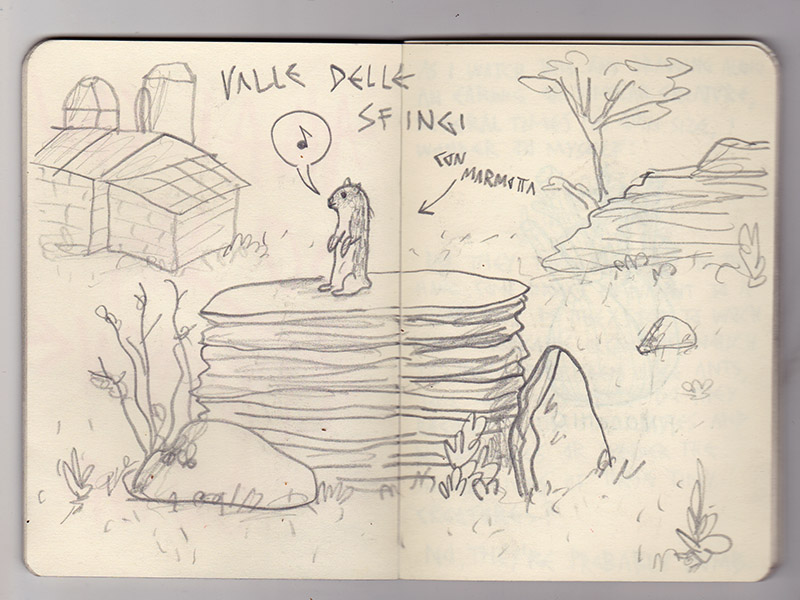 VALLE DELLE
SFINGI
CON
MARMOTTA